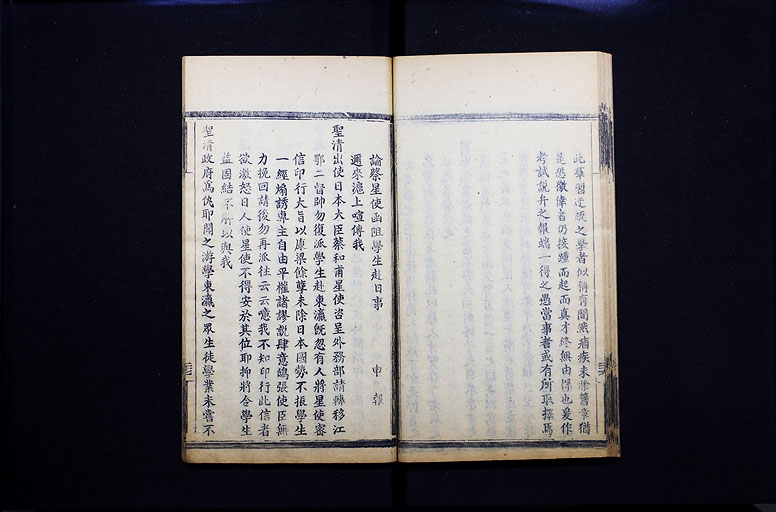 此輩習迂疎之學者似稍有間然痼疾未除舊章猶
是愍徼倖者仍接踵而起而真才終無由得也爰作
考試說弁之報端一得之愚當事者或有所取擇焉
論蔡星使函阻學生赴日事 申報
邇來滬上喧傳我
聖清出使日本大臣蔡和甫星使咨呈外務部請轉移江
鄂二督帥勿復派學生赴東瀛旣忽有人將星使密
信印行大旨以康梁餘孽未除日本國勢不振學生
一經煽誘專主自由平權諸謬說肆意鴟張使臣無
力挽回請後勿再派往云云噫我不知印行此信者
欲激怒日人使星使不得安於其位耶抑將令學生
益固結不解以與我
聖清政府爲仇耶聞之游學東瀛之眾生徒學業未嘗不